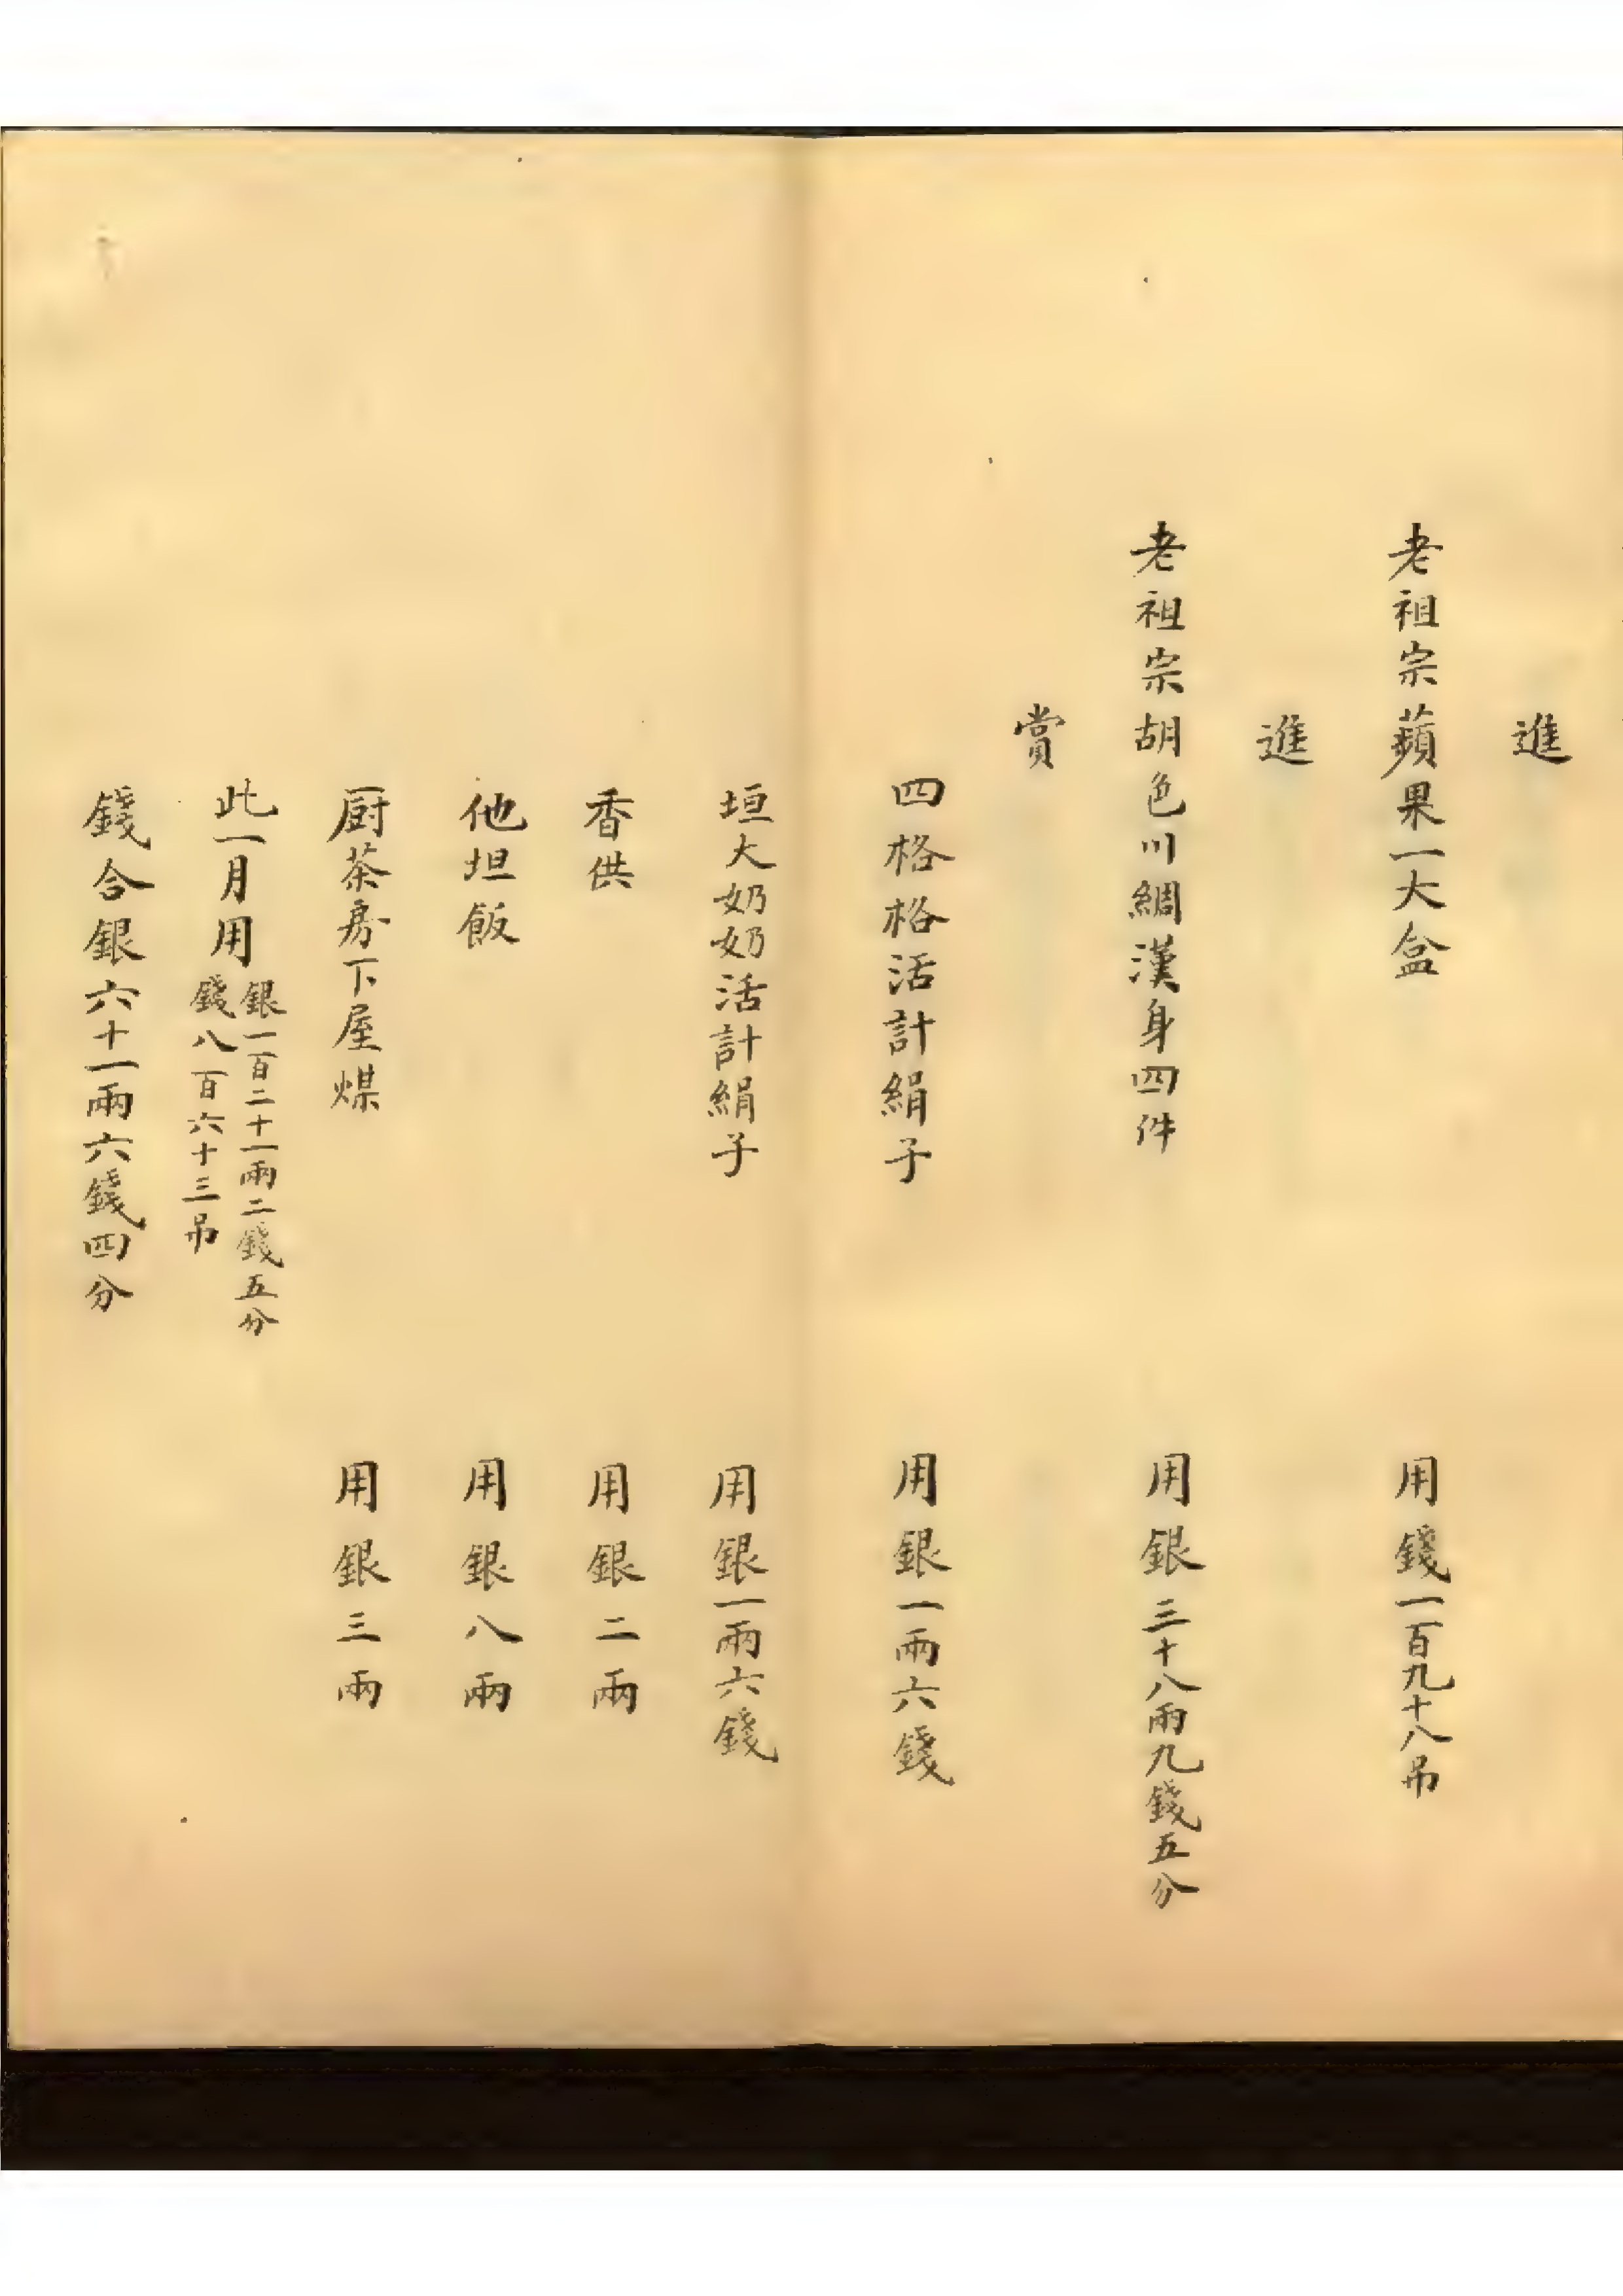 進
老祖宗蘋果一大盒 用錢一百九十八吊
進
老祖宗胡色川綢漢身四件 用銀三十八兩九錢五分
賞
四格格活計絹子 用銀一兩六錢
垣大奶奶活計絹子 用銀一兩六錢
香供 用銀二兩
他坦飯 用銀八兩
厨茶房下屋煤 用銀三兩
此一月用
銀一百二十一兩二錢五分
錢八百六十三吊
錢合銀六十一兩六錢四分